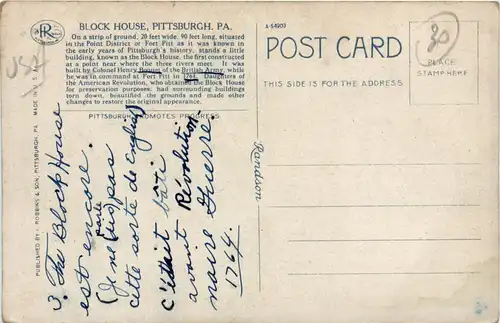 BLOCK HOUSE, PITTSBURGH, PA.
On a strip of ground, 20 feet wide, 90 feet long, situated
in the Point District or Fort Pitt as it was known in the
early years of Pittsburgh's history, stands a little
building, known as the Block House, the first constructed
at a point near where the three rivers meet. It was
built by Colonel Henry Bouquet of the British Army, while
he was in command at Fort Pitt in 1764. Daughters of
the American Revolution, who obtained the Block House
for preservation purposes, had surrounding buildings
torn down, beautified the grounds and made other
changes to restore the original appearance.
PITTSBURGH PROMOTES PROGRESS
USA
MADE IN U. S. A.
PUBLISHED BY - ROBBINS & SON, PITTSBURGH, PA.
3. The Block House
est encore.
(Je ne parle pas
cette sorte de english)
c'était bâti
avant Révolution-
naire Guerre
1764.
A-54903
POST CARD
THIS SIDE IS FOR THE ADDRESS
PLACE
STAMP HERE
30
Randson